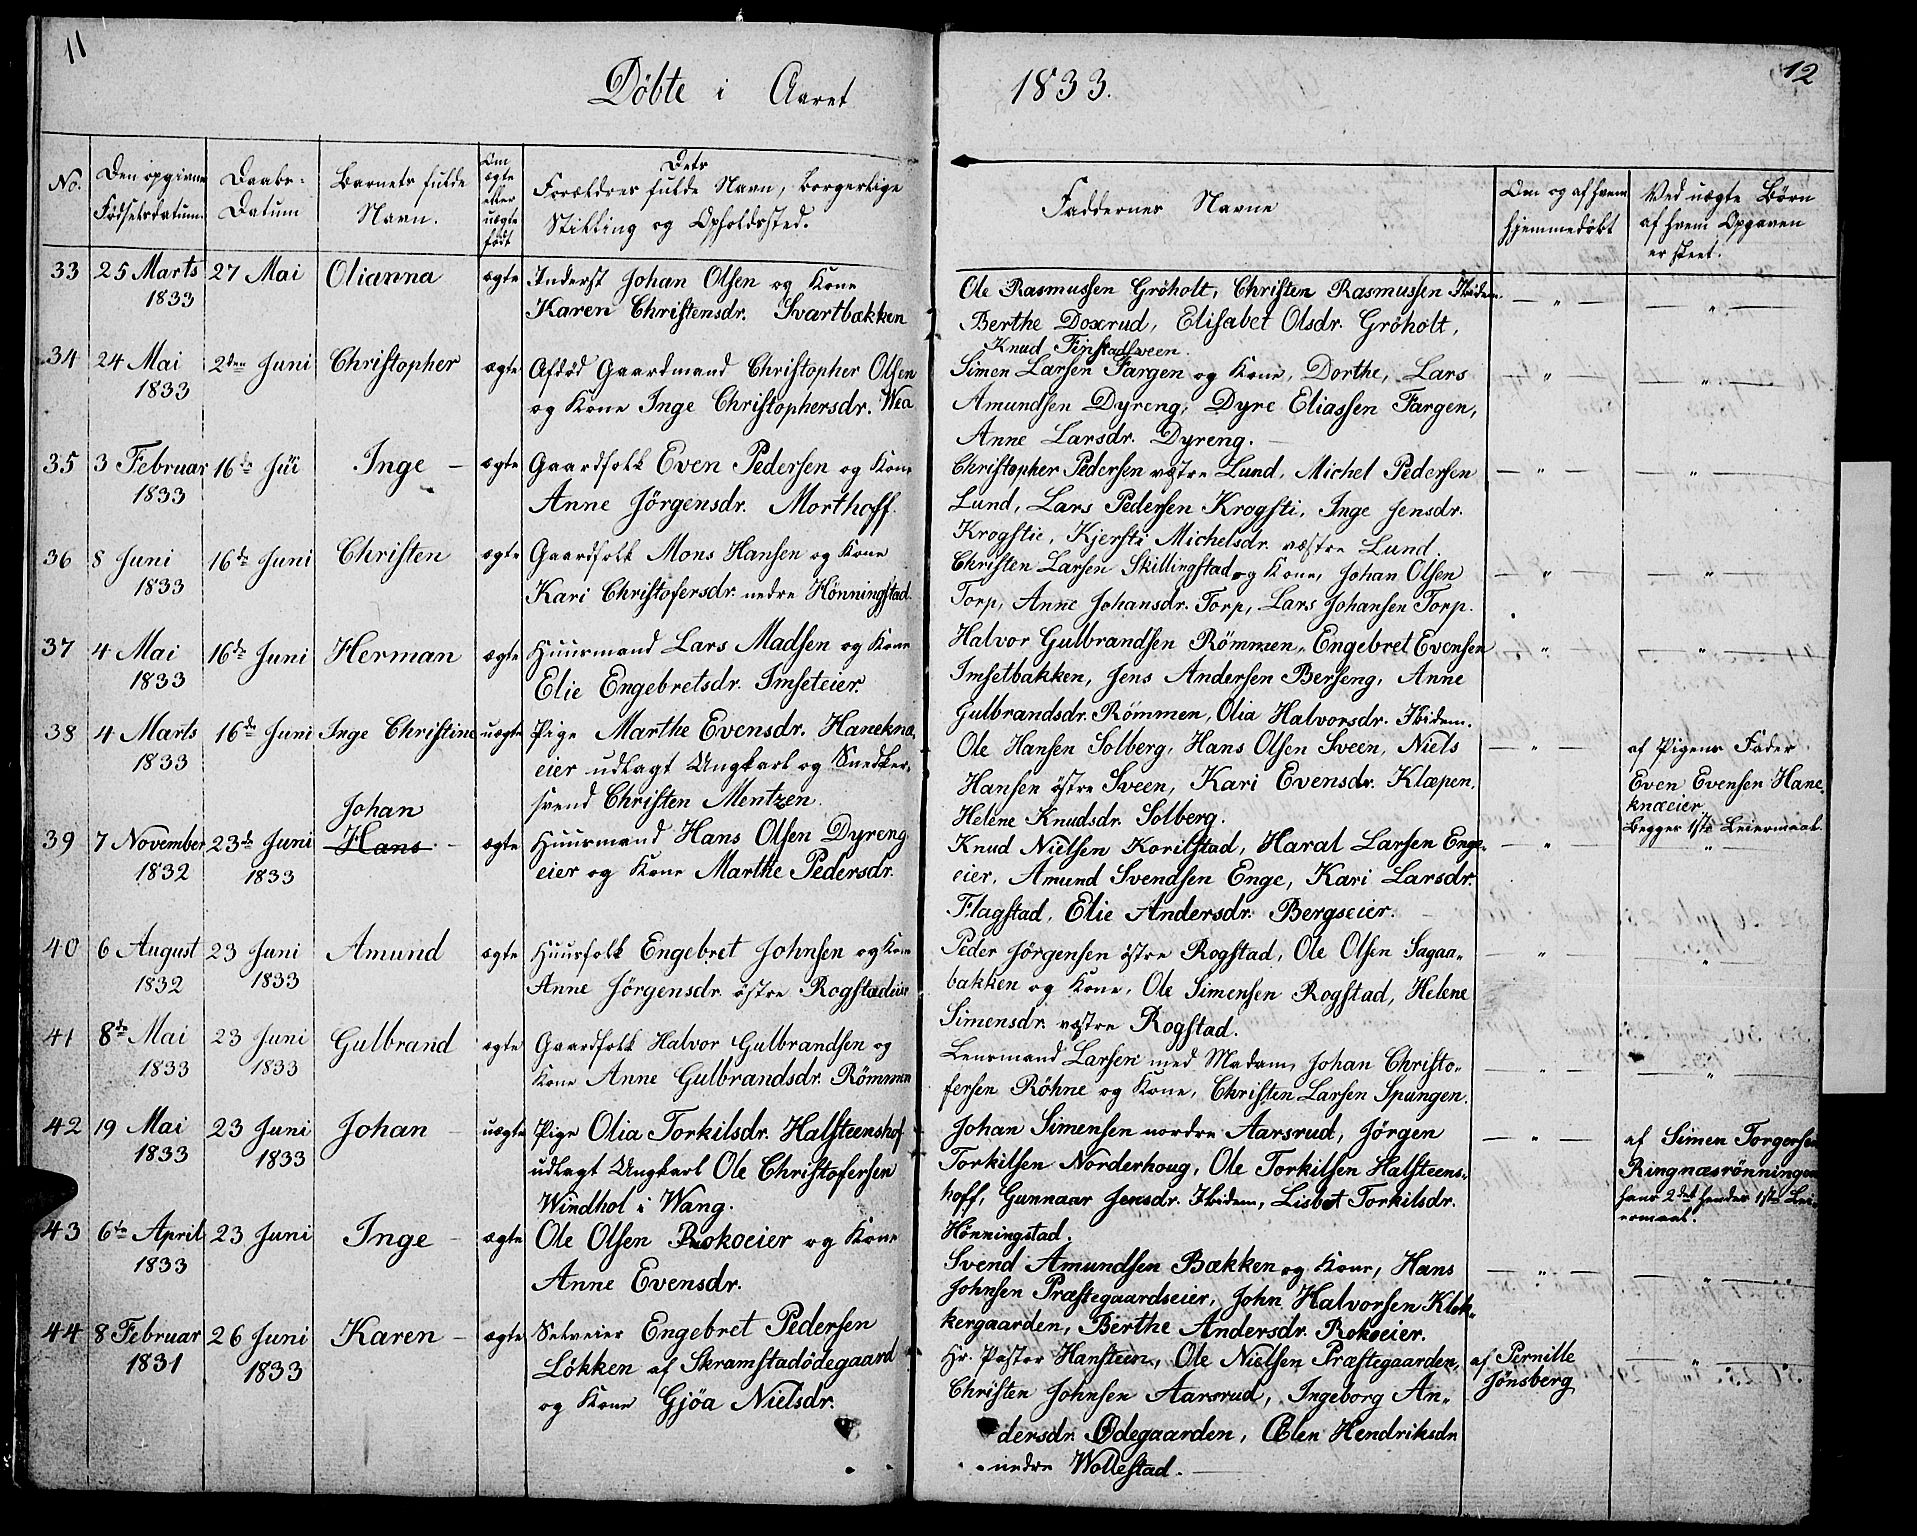 11
12
Döbte i Aaret 1833.
No.
Den opgivne Födselsdatum.
Daabs-Datum
Barnets fulde Navn.
Om ægte eller uægte födt
Dets Forældres fulde Navn, borgerlige Stilling og Opholdssted.
Faddernes Navne
Om og af hvem hjemmedöbt
Ved uægte Börn af hvem Opgaven er skeet.
33 25 Marts 27 Mai Olianna ægte Inderst Johan Olsen og Kone
1833 Karen Christensdr. Svartbækken
Ole Rasmussen Gröholt, Christen Rasmussen Ibidem. — " — — " —
Berthe Doxrud, Elisabet Olsdr. Gröholt,
Knud Finstadsveen.
34 24 Mai 2den Juni Christopher ægte Afdöd Gaardmand Christopher Olsen
1833 og Kone Inge Christophersdr. Wea
Simen Larsen Fargen og Kone, Dorthe, Lars — " — — " —
Amundsen Dyreng, Dyre Eliassen Fargen,
Anne Larsdr. Dyreng.
35 3 Februar 16de Jüi Inge — ægte Gaardfolk Even Pedersen og Kone
1833 Anne Jörgensdr. Morthoff.
Christopher Pedersen væstre Lund, Michel Pedersen — " — — " —
Lund, Lars Pedersen Krogsti, Inge Jensdr.
Krogstie, Kjersti Michelsdr. væstre Lund.
36 8 Juni 16de Juni Christen ægte Gaardfolk Mons Hansen og Kone
1833 Kari Christofersdr. nedre Hönningstad.
Christen Larsen Skillingstad og Kone, Johan Olsen — " — — " —
Torp, Anne Johansdr. Torp, Lars Johansen Torp.
37 4 Mai 16de Juni Herman ægte Huusmand Lars Madsen og Kone
1833 Elie Engebretsdr. Imseteier.
Halvor Gulbrandsen Römmen, Engebret Evensen " — " —
Imsetbakken, Jens Andersen Berseng, Anne
Gulbrandsdr. Römmen, Olia Halvorsdr. Ibidem.
38 4 Marts 16de Juni Inge Christine uægte Pige Marthe Evensdr. Haneknæ-
1833 eier udlagt Ungkarl og Snedker-
svend Christen Mentzen.
Ole Hansen Solberg, Hans Olsen Sveen, Niels — " — af Pigens Fader
Hansen östre Sveen, Kari Evensdr. Klæpen, Even Evensen Hane-
Helene Knudsdr. Solberg. knæeier
Begges 1ste Leiermaal.
Johan
39 7 November 23de Juni Hans — ægte Huusmand Hans Olsen Dyreng
1832 1833 eier og Kone Marthe Pedersdr.
Knud Nielsen Korilstad, Haral Larsen Enge- — " — " —
eier, Amund Svendsen Enge, Kari Larsdr.
Flagstad, Elie Andersdr. Bergseier.
40 6 August 23 Juni Amund ægte Huusfolk Engebret Johnsen og Kone
1832 1833 Anne Jörgensdr. östre Rogstadeier
Peder Jörgensen östre Rogstad, Ole Olsen Sagaa- — " — — " —
bakken og Kone, Ole Simensen Rogstad, Helene
Simensdr. væstre Rogstad.
41 8de Mai 23 Juni Gulbrand ægte Gaardfolk Halvor Gulbrandsen og
1833 1833 Kone Anne Gulbrandsdr. Römmen
Lensmand Larsen med Madam, Johan Christo- — " — — " —
fersen Röhne og Kone, Christen Larsen Spangen.
42 19 Mai 23 Juni Johan — uægte Pige Olia Torkilsdr. Halsteenshof
1833 1833 udlagt Ungkarl Ole Christofersen
Windhol i Wang.
Johan Simensen nordre Aarsrud, Jörgen — " — af Simen Torgersen
Torkilsen Norderhoug, Ole Torkilsen Halsteens- Ringnæsrönningen
hoff, Gunnaar Jensdr. Ibidem, Lisbet Torkilsdr. hans 2det hendes 1ste Lei-
Hönningstad. ermaal.
43 6te April 23 Juni Inge — ægte Ole Olsen Rokoeier og Kone
1833 Anne Evensdr.
Svend Amundsen Bækken og Kone, Hans — " — — " —
Johnsen Præstegaardseier, John Halvorsen Klok-
kergaarden, Berthe Andersdr. Rokoeier.
44 8 Februar 26 Juni Karen — ægte Selveier Engebret Pedersen
1831 1833 Lökken af Skramstadödegaard
og Kone Gjöa Nielsdr.
Hr. Pastor Hansteen, Ole Nielsen Præstegaarden, af Pernille — " —
Christen Johnsen Aarsrud, Ingeborg An- Jönsberg
dersdr. Ödegaarden, Olen Hendriksdr.
nedre Wollestad.